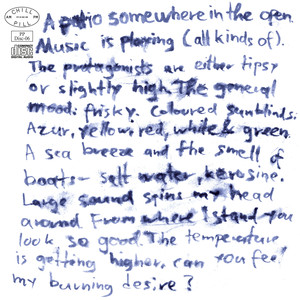 CHILL
PILL
FP
Disc-06
A patio somewhere in the open.
Music is playing (all kinds of).
The protagonists are either tipsy
or slightly high. The general
mood: frisky. Coloured sunblinds:
Azur, yellow, red, white & green.
A sea breeze and the smell of
boats - salt water, kerosine.
Large sound spins my head
around From where I stand you
look so good. The temperature
is getting higher, can you feel
my burning desire?